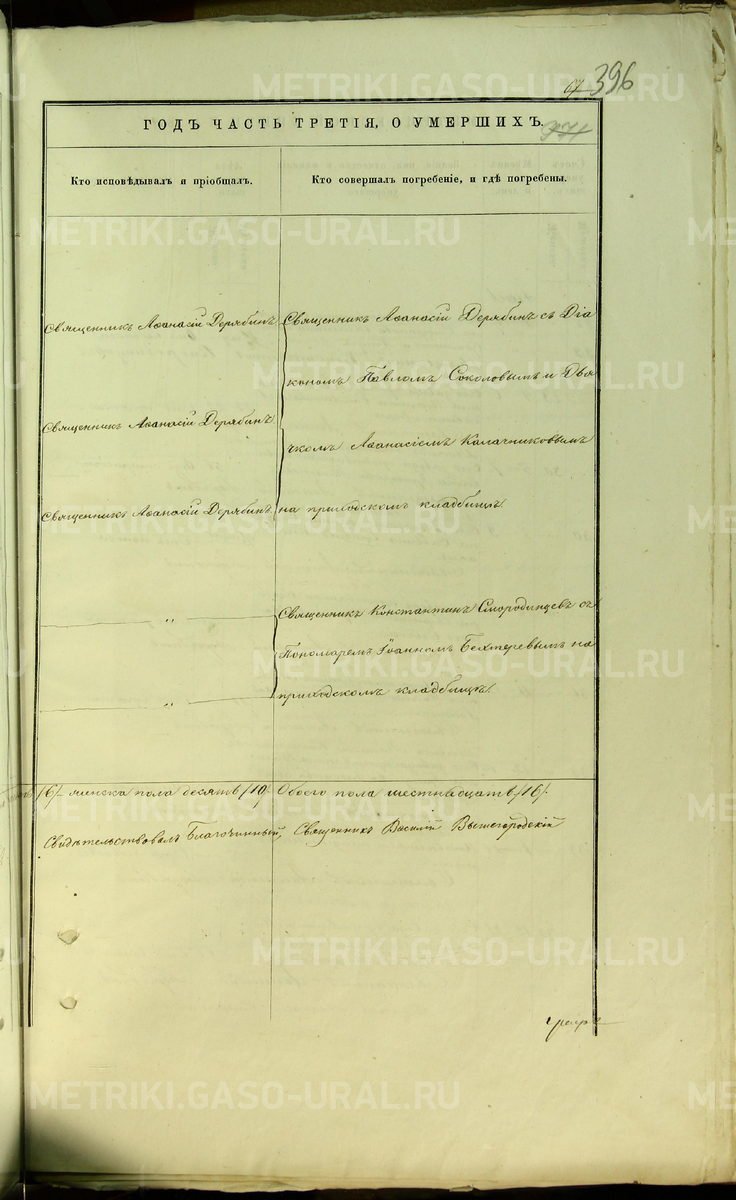 396
ГОДЪ ЧАСТЬ ТРЕТІЯ, О УМЕРШИХЪ.
Кто исповѣдывалъ и пріобщалъ.
Кто совершалъ погребеніе, и гдѣ погребены.
Священникъ Аѳанасій Дерябинъ
Священникъ Аѳанасій Дерябинъ
Священникъ Аѳанасій Дерябинъ.
„
„
Священникъ Аѳанасій Дерябинъ съ Діа
кономъ Павломъ Соколовымъ и Дья
чкомъ Аѳанасіемъ Калачниковымъ
на приходскомъ кладбищѣ.
Священникъ Константинъ Смородинцевъ съ
Пономаремъ Іоанномъ Бехтеревымъ на
приходскомъ кладбищѣ.
/6/- женска пола десять /10/- Обоего пола шестнадцать /16/.
Свидѣтельствовалъ Благочинный, Священникъ Василій Вышегородскій
METRIKI.GASO-URAL.RU